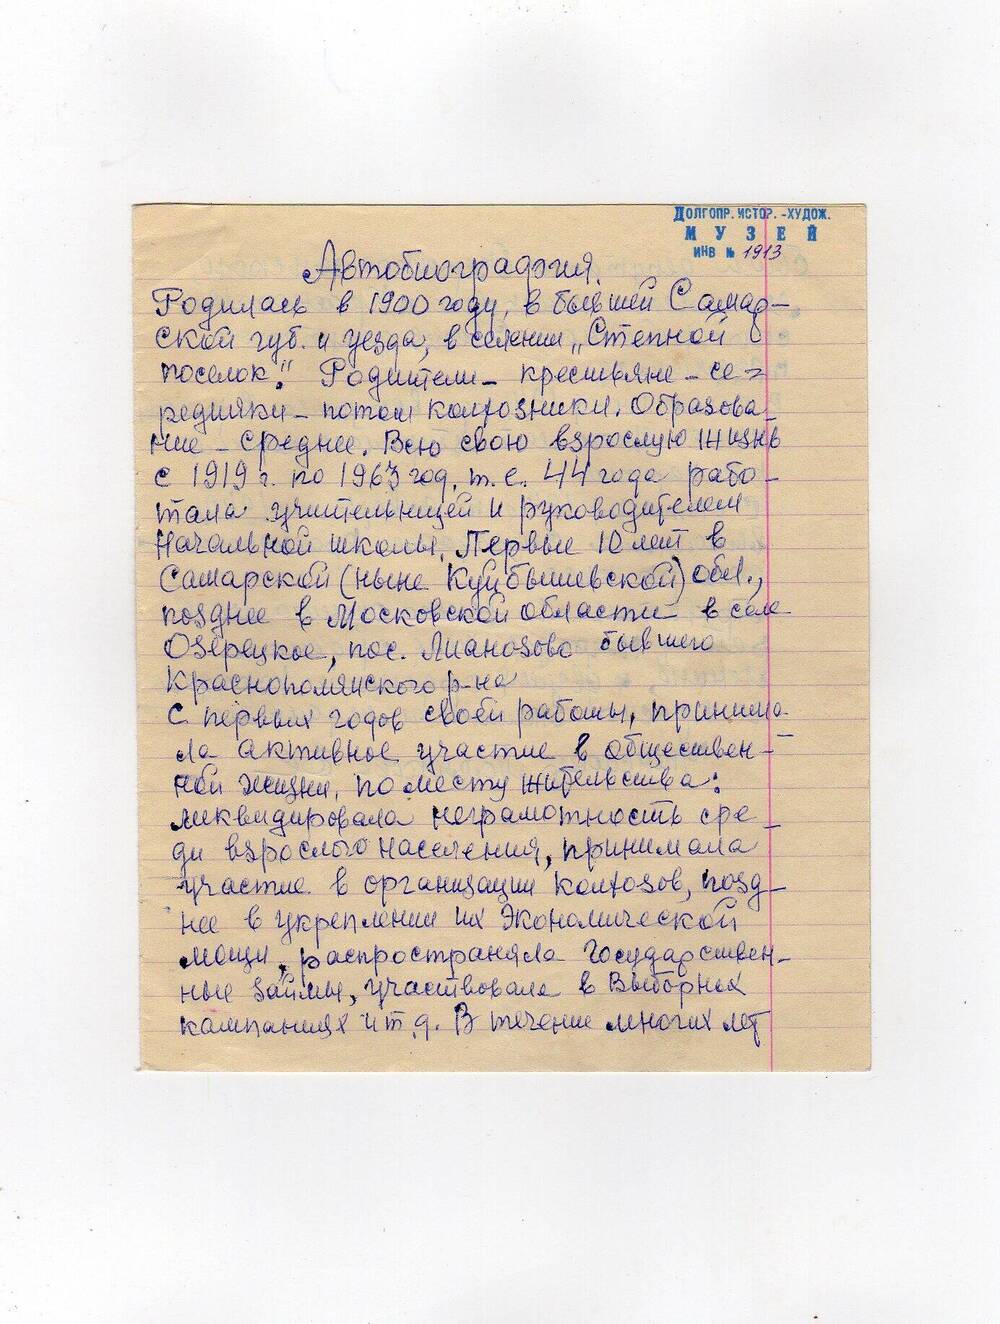 ДОЛГОПР. ИСТОР.-ХУДОЖ.
МУЗЕЙ
ИНВ № 1913
Автобиография.
Родилась в 1900 году, в бывшей Самар-
ской губ. и уезда, в селении „Степной
поселок." Родители – крестьяне – се-
редняки – потом колхозники. Образова-
ние – среднее. Всю свою взрослую жизнь
с 1919 г. по 1963 год, т.е. 44 года рабо-
тала учительницей и руководителем
начальной школы. Первые 10 лет в
Самарской (ныне Куйбышевской) обл.,
позднее в Московской области в селе
Озерецкое, пос. Лианозово бывшего
Краснополянского р-на
С первых годов своей работы, принима-
ла активное участие в обществен-
ной жизни, по месту жительства:
ликвидировала неграмотность сре-
ди взрослого населения, принимала
участие в организации колхозов, позд-
нее в укреплении их экономической
мощи, распространяла государствен-
ные займы, участвовала в выборных
кампаниях и т.д. В течение многих лет